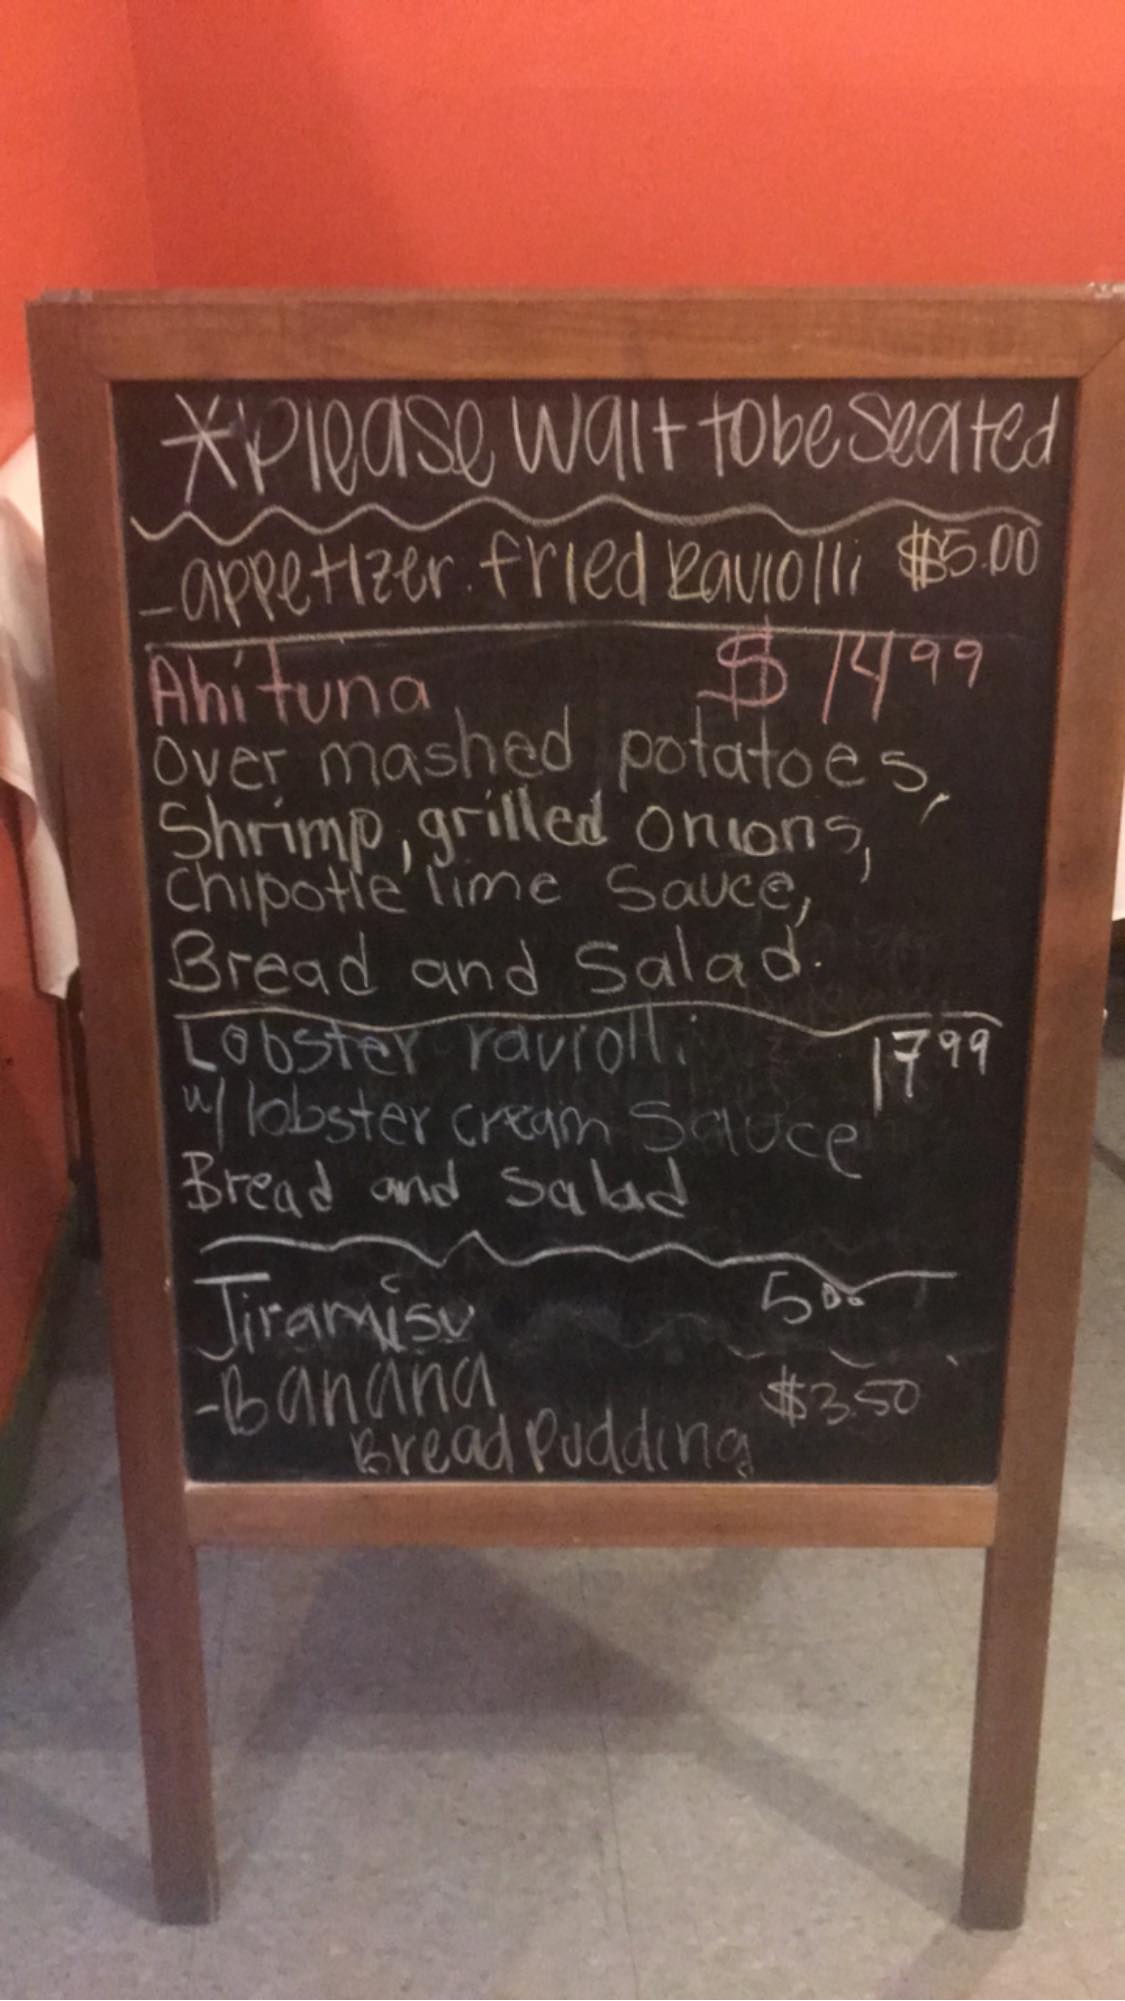 *Please wait to be Seated
- appetizer. fried Raviolli $5.00
Ahi tuna $14 99
Over mashed potatoes,
Shrimp, grilled onions,
chipotle lime Sauce,
Bread and Salad.
Lobster ravioli 17 99
w/ lobster cream Sauce
Bread and Salad
Tiramisu 5 00
- Banana $3.50
Bread Pudding